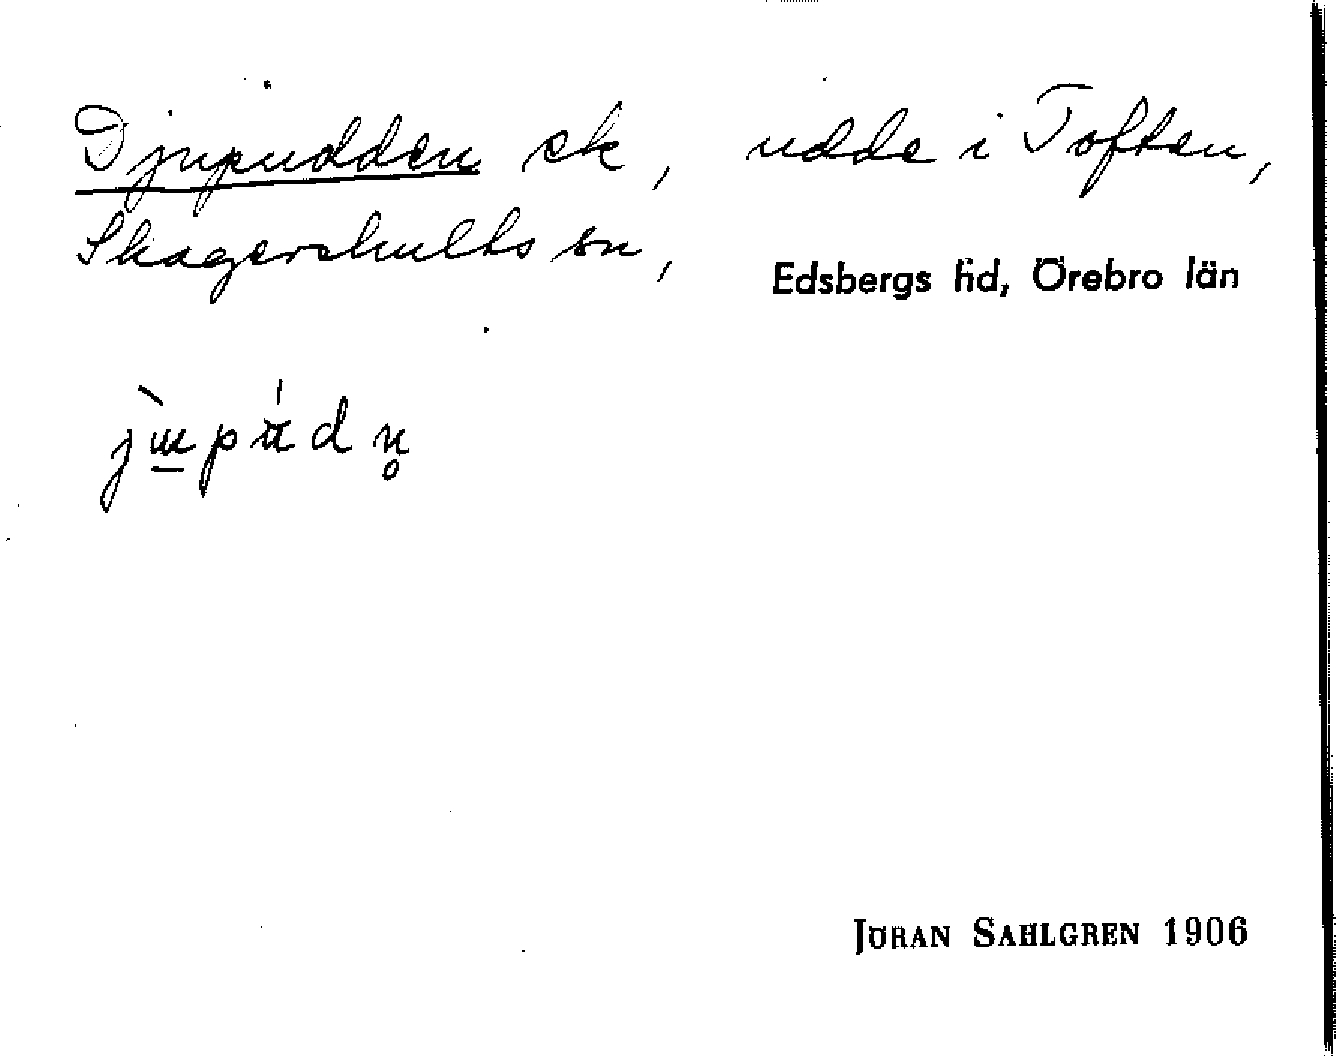 Djupudden ek, udde i Toften,
Skagershults sn,
Edsbergs hd, Örebro län
JÖRAN SAHLGREN 1906